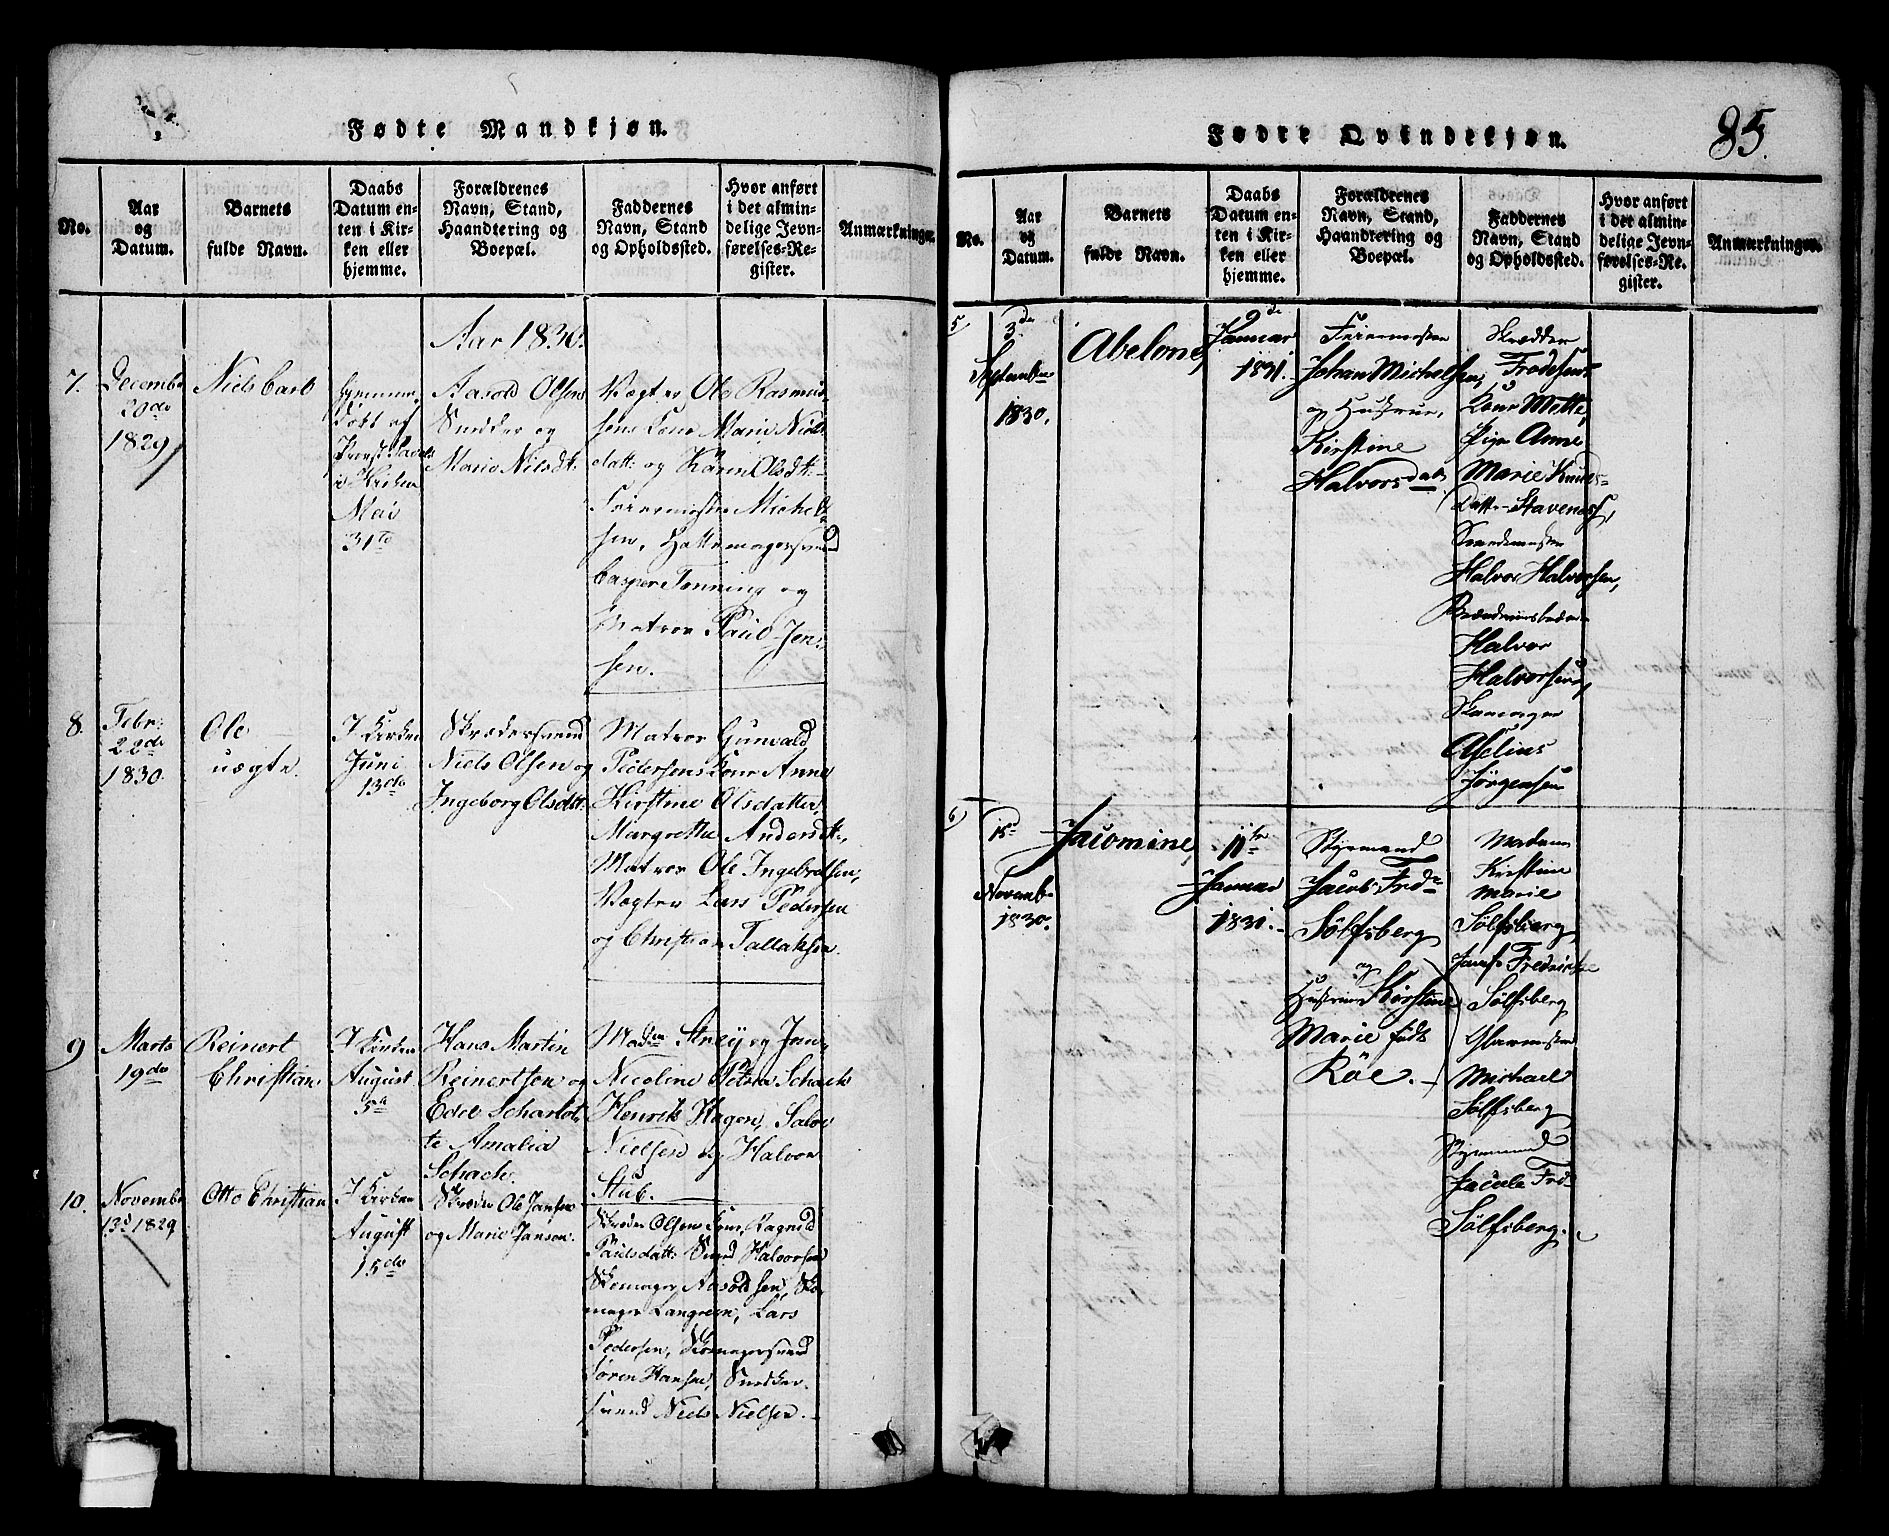 Fødte Mandkjøn.
No.
Aar
og
Datum.
Barnets
fulde Navn.
Daabs
Datum en-
ten i Kir-
ken eller
hjemme.
Forældrenes
Navn, Stand,
Haandtering og
Boepæl.
Faddernes
Navn, Stand
og Opholdssted.
Hvor anført
i det almin-
delige Jevn-
førelses-Re-
gister.
Anmærkninger.
Aar 1830.
7.
Decembr
20de
1829
Niels Carl
Hjemme
døbt af
i Kirken
Mai
31te
Aarold Olsen
Snedker og
Marie Nilsdt.
Vægter Ole Rasmus-
sens Kone Marie Niels
datt. og Karen Olsdt.
Feiermester Michel-
sen, Hattemagersvend
Casper Tønning og
Matros Paul Jen-
sen.
8.
Febr.
22de
1830.
Ole
uægte.
I Kirken
Juni
13de
Skrædersvend
Niels Olsen og
Ingeborg Olsdtt.
Matros Gunvald
Pedersens Kone Anne
Kirstine Olsdatter,
Margrethe Andersdt.,
Matros Ole Ingebretsen,
Vægter Lars Pedersen
og Christian Tallaksen.
9
Marts
19de
Reinert
Christian
I Kirken
August
5te
Hans Martin
Reinertsen og
Edel Scharlot-
te Amalia
Schach.
Madm Strey og Jom.
Nicoline Petrea Schach
Henrik Hagen, Salve
Nielsen og Halvor
Stub.
10.
Novembr
13de 1829
Otto Christian
I Kirken
August
15de
Skræder Ole Jansen
og Marie Jansen.
Skræder Olsens Kone, Ragnild
Paulsdatt. Svend Halvorsen
Skomager Aarold sen, Sko-
mager Langreen, Lars
Pedersen, Skomagersvend
Søren Hansen, Snedker-
svend Niels Nielsen.
85.
Fødte Qvindekjøn.
No.
Aar
og
Datum.
Barnets
fulde Navn.
Daabs
Datum en-
ten i Kir-
ken eller
hjemme.
Forældrenes
Navn, Stand,
Haandtering og
Boepæl.
Faddernes
Navn, Stand
og Opholdssted.
Hvor anført
i det almin-
delige Jevn-
førelses-Re-
gister.
Anmærkninger.
5
3de
Septembr
1830.
Abelone,
9de
Januar
1831.
Feiermester
Johan Michelsen,
og Hustrue,
Kirstine
Halvorsdatt.
Skrædder
Frodesens
Kone Mette,
Pige Anne
Marie Knuds-
Datter Stavenæs,
Halvor Halvorsen,
Halvor
Halvorsen,
Skomager
Aslius
Jørgensen
6
15de
Novembr
1830.
Jacomine,
11te
Januar
1831.
Styrmand
Jacob Frd.
Sölfsberg
og
Hustrue Kirstine
Marie født
Röe.
Madam
Kirstine
Marie
Sölfsberg,
Jomf. Fredrikke
Sölfsberg
Glarmester
Michael
Sölfsberg
Styrmand
Jacob Frd.
Sölfsberg.